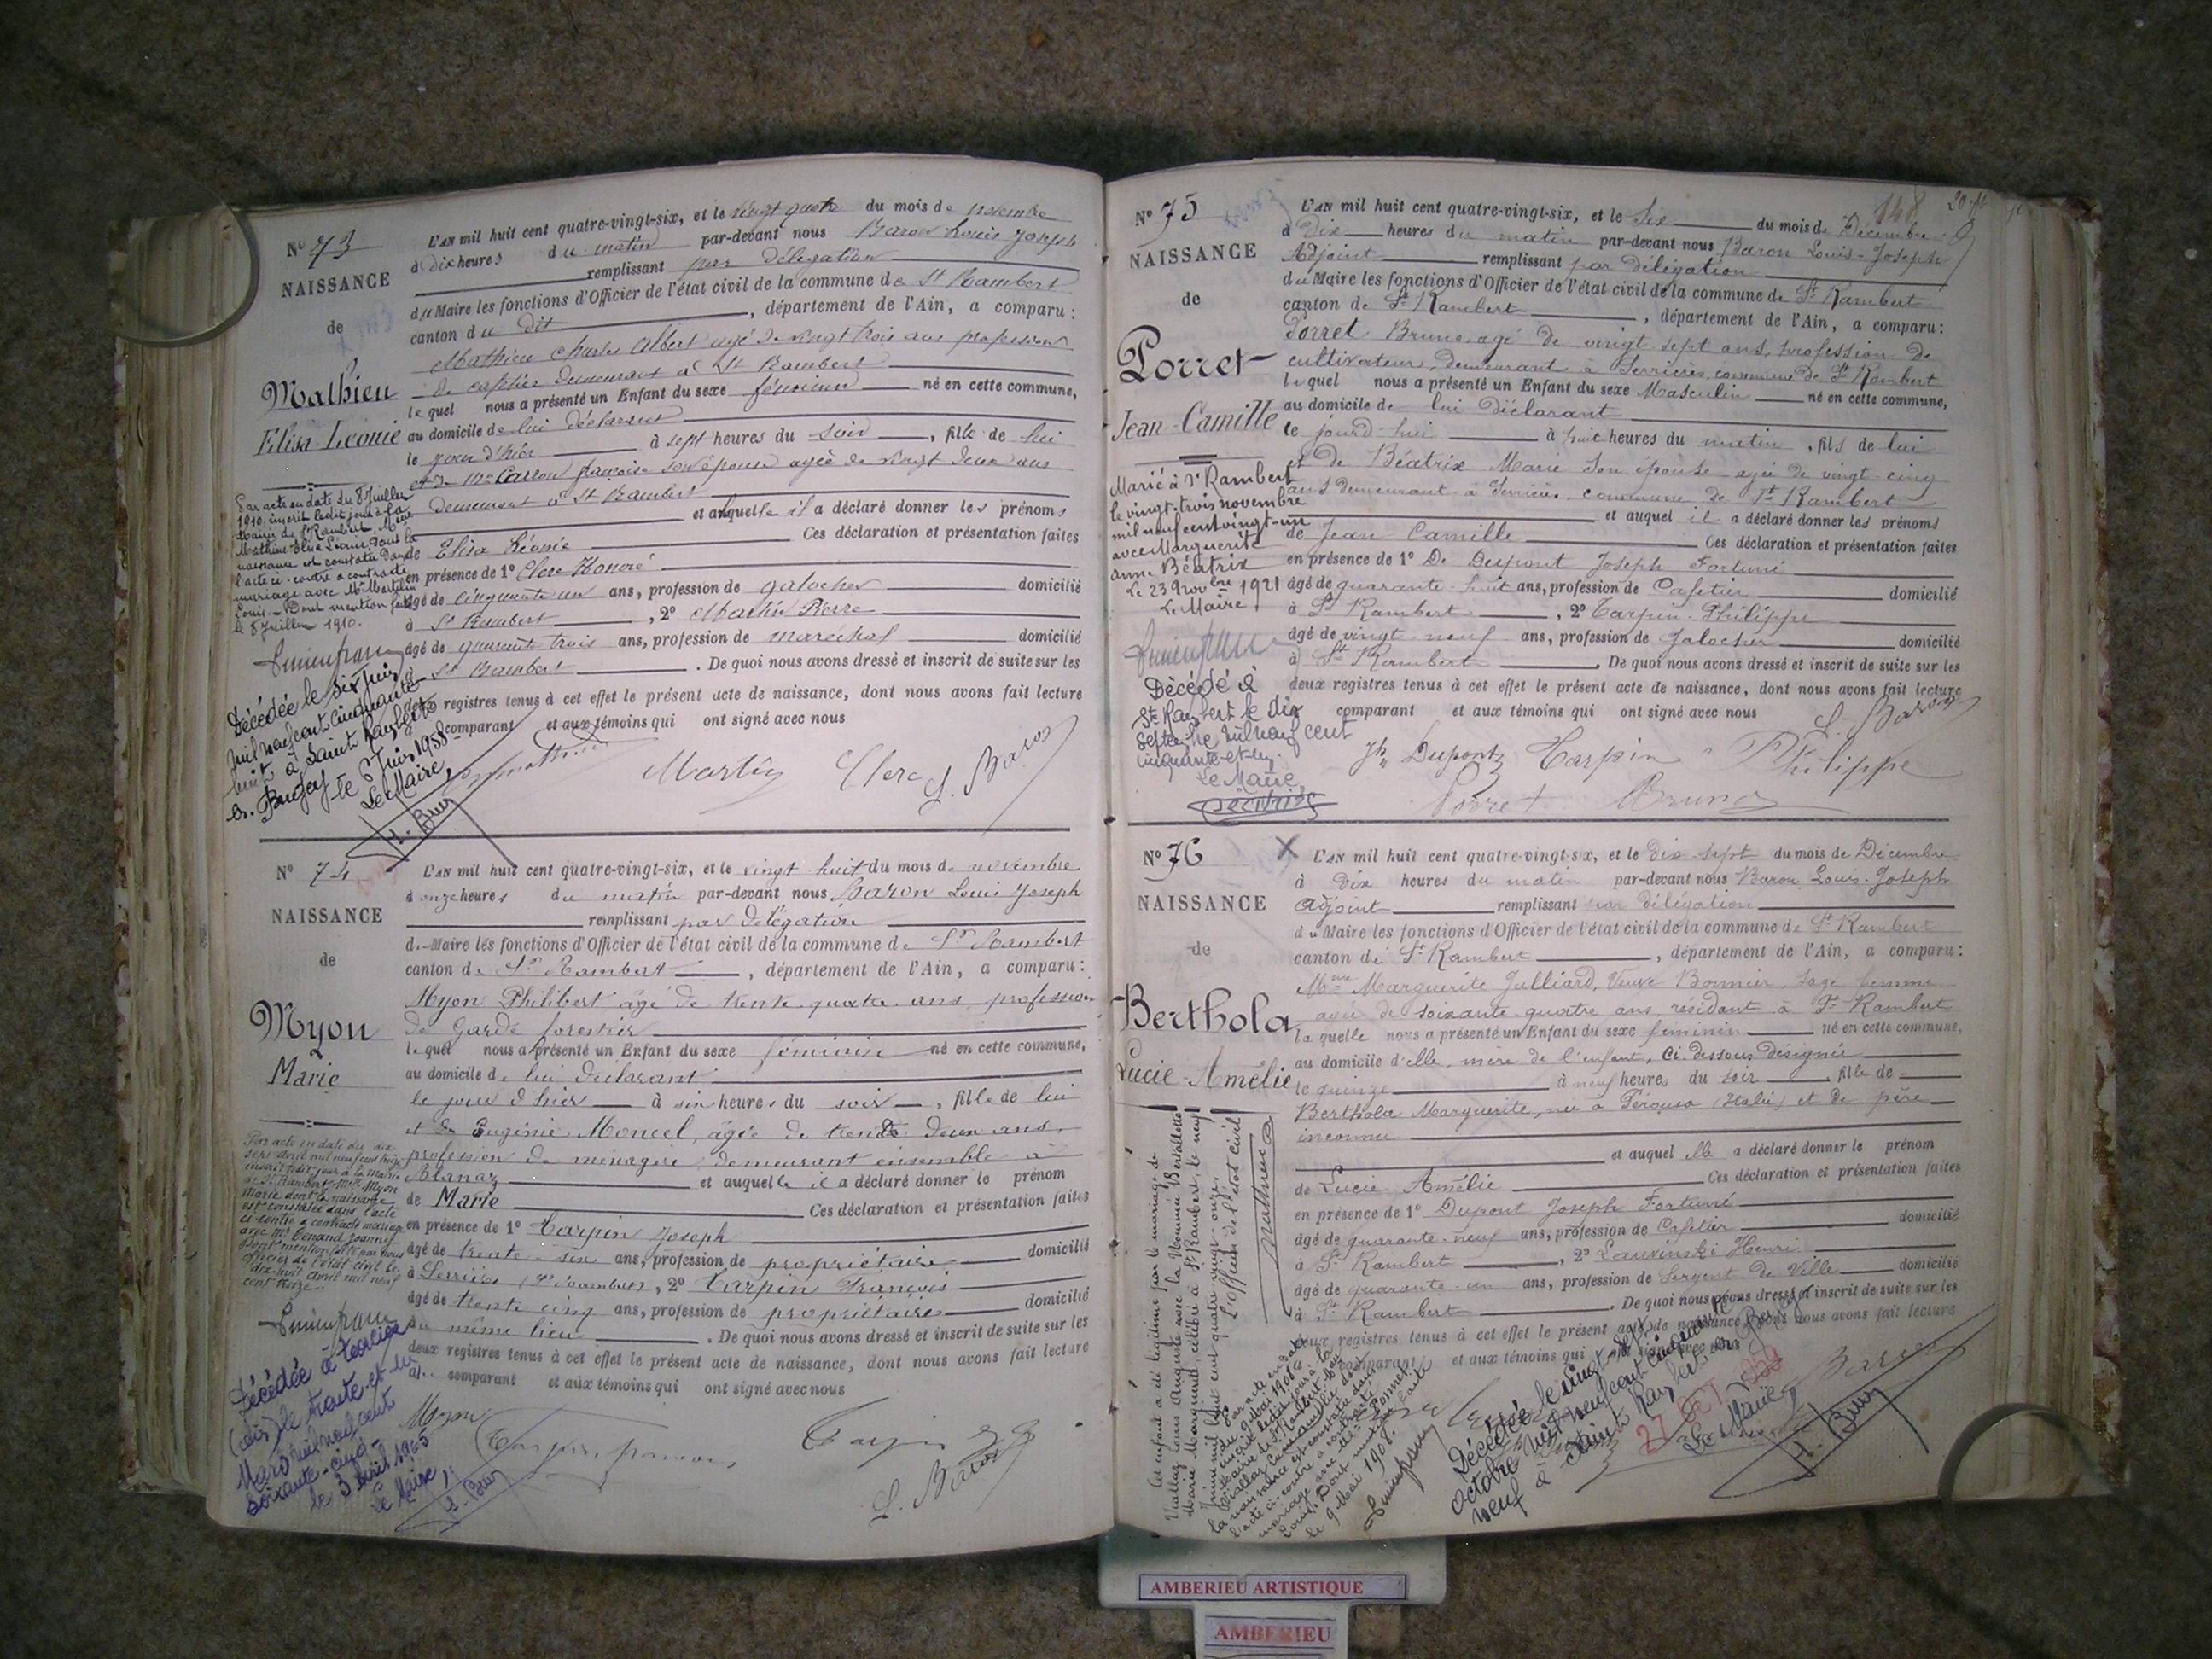 N° 73
NAISSANCE
de
Mathieu
Elisa Léonie
L'AN mil huit cent quatre-vingt-six, et le vingt quatre du mois de novembre
à dix heures du matin par-devant nous Baron Louis Joseph
remplissant par délégation
du Maire les fonctions d'Officier de l'état civil de la commune de St Rambert
canton du dit, département de l'Ain, a comparu:
Mathieu Charles Albert agé de vingt trois ans profession
de cafetier demeurant à St Rambert
lequel nous a présenté un Enfant du sexe féminin né en cette commune,
au domicile de lui déclarant
le jour d'hier à sept heures du soir, fille de lui
et de Carron françoise son épouse agée de vingt deux ans
demeurant à St Rambert
et auquel le il a déclaré donner les prénoms
de Elisa Léonie Ces déclaration et présentation faites
en présence de 1° Clerc Honoré
âgé de cinquante un ans, profession de galocher domicilié
à St Rambert, 2° Martin Pierre
âgé de quarante trois ans, profession de maréchal domicilié
à St Rambert. De quoi nous avons dressé et inscrit de suite sur les
deux registres tenus à cet effet le présent acte de naissance, dont nous avons fait lecture
comparant et aux témoins qui ont signé avec nous
Martin Clerc L. Baron
Par acte en date du 8 Juillet
1910 inscrit ledit jour à la
Mairie de St Rambert, Melle
Mathieu Elisa Léonie dont la
naissance est constatée dans
l'acte ci-contre a contracté
mariage avec Mr Martelin
Louis. Dont mention faite
le 8 Juillet 1910.
Décédée le six Juin
mil neuf cent cinquante
huit à Saint Rambert
en Bugey le 7 Juin 1958
Le Maire,
N° 74
NAISSANCE
de
Myon
Marie
L'AN mil huit cent quatre-vingt-six, et le vingt huit du mois de novembre
à onze heures du matin par-devant nous Baron Louis Joseph
remplissant par délégation
de Maire les fonctions d'Officier de l'état civil de la commune de St Rambert
canton de St Rambert, département de l'Ain, a comparu:
Myon Philibert âgé de trente quatre ans profession
de Garde forestier
lequel nous a présenté un Enfant du sexe féminin né en cette commune,
au domicile de lui déclarant
le jour d'hier à six heures du soir, fille de lui
et de Eugénie Moncel, âgée de trente deux ans,
profession de ménagère demeurant ensemble à
Blanaz et auquel le il a déclaré donner le prénom
de Marie Ces déclaration et présentation faites
en présence de 1° Tarpin Joseph
âgé de trente six ans, profession de propriétaire domicilié
à Serrières (St Rambert), 2° Tarpin François
âgé de trente cinq ans, profession de propriétaire domicilié
au même lieu. De quoi nous avons dressé et inscrit de suite sur les
deux registres tenus à cet effet le présent acte de naissance, dont nous avons fait lecture
au comparant et aux témoins qui ont signé avec nous
Myon
Tarpin
L. Baron
Par acte en date du dix
sept avril mil neuf cent treize
inscrit ledit jour à la mairie
de St Rambert, Melle Myon
Marie dont la naissance
est constatée dans l'acte
ci-contre a contracté mariage
avec Mr Tenand Joanny
Dont mention faite par nous
officier de l'état civil le
dix huit avril mil neuf
cent treize.
Décédée à Tenay
(Ain) le trente et un
Mars mil neuf cent
soixante-cinq
le 3 Avril 1965
le Maire,
N° 75
NAISSANCE
de
Porret
Jean-Camille
148
L'AN mil huit cent quatre-vingt-six, et le Six du mois de Décembre
à Dix heures du matin par-devant nous Baron Louis-Joseph
Adjoint remplissant par délégation
du Maire les fonctions d'Officier de l'état civil de la commune de St Rambert
canton de St Rambert, département de l'Ain, a comparu:
Porret Bruno agé de vingt sept ans, profession de
cultivateur, demeurant à Serrières, commune de St Rambert
lequel nous a présenté un Enfant du sexe Masculin né en cette commune,
au domicile de lui déclarant
le jourd'hui à huit heures du matin, fils de lui
et de Béatrix Marie son épouse agée de vingt cinq
ans demeurant à Serrières commune de St Rambert
et auquel il a déclaré donner les prénoms
de Jean Camille Ces déclaration et présentation faites
en présence de 1° De Dupont Joseph Fortuné
âgé de quarante-huit ans, profession de Cafetier domicilié
à St Rambert, 2° Tarpin Philippe
âgé de vingt-neuf ans, profession de Galocher domicilié
à St Rambert. De quoi nous avons dressé et inscrit de suite sur les
deux registres tenus à cet effet le présent acte de naissance, dont nous avons fait lecture
comparant et aux témoins qui ont signé avec nous
L. Baron
Jh Dupont Tarpin Philippe
Porret Bruno
Marié à St Rambert
le vingt-trois novembre
mil neuf cent vingt-un
avec Marguerite
Anna Béatrix
Le 23 Novbre 1921
Le Maire
Décédé à
St Rambert le dix
Septembre mil neuf cent
cinquante-et-un
Le Maire
N° 76
NAISSANCE
de
Berthola
Lucie-Amélie
L'AN mil huit cent quatre-vingt-six, et le Dix-sept du mois de Décembre
à Dix heures du matin par-devant nous Baron Louis-Joseph
Adjoint remplissant par délégation
du Maire les fonctions d'Officier de l'état civil de la commune de St Rambert
canton de St Rambert, département de l'Ain, a comparu:
Mme Marguerite Julliard, Veuve Bonnier Sage femme
agée de soixante quatre ans résidant à St Rambert
laquelle nous a présenté un Enfant du sexe féminin né en cette commune,
au domicile d'elle, mère de l'enfant, ci-dessous désignée
le quinze à neuf heures du soir, fille de
Berthola Marguerite, née à Pérousa (Italie) et de père
inconnu
et auquel elle a déclaré donner le prénom
de Lucie Amélie Ces déclaration et présentation faites
en présence de 1° Dupont Joseph Fortuné
âgé de quarante-neuf ans, profession de Cafetier domicilié
à St Rambert, 2° Lauvinski Henri
âgé de quarante-un ans, profession de Sergent de Ville domicilié
à St Rambert. De quoi nous avons dressé et inscrit de suite sur les
deux registres tenus à cet effet le présent acte de naissance dont nous avons fait lecture
comparant et aux témoins qui ont signé avec nous
Baron
Cet enfant a été légitimé par le mariage de
Viallaz Louis Auguste avec la Nommée Bertalotto
Marie Marguerite, célébré à St Rambert, le neuf
L'officier de l'état civil
Par acte en date
du 9 Mai 1908
le 9 Mai 1908.
Décédée le vingt-sept
octobre mil neuf cent cinquante
neuf à Saint Rambert en Bugey
Le Maire,
AMBERIEU ARTISTIQUE
AMBERIEU